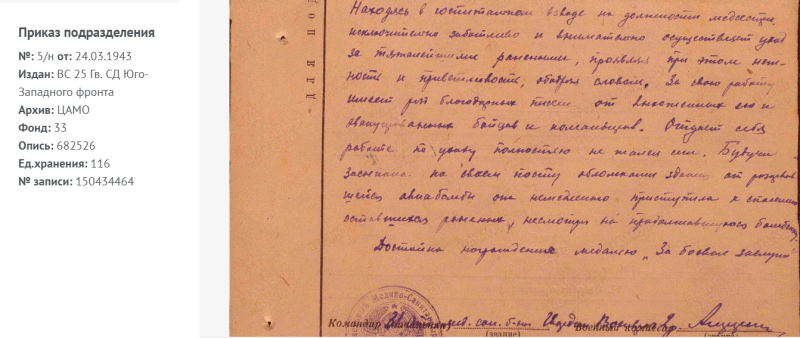 Приказ подразделения
№: 5/н от: 24.03.1943
Издан: ВС 25 Гв. СД Юго-
Западного фронта
Архив: ЦАМО
Фонд: 33
Опись: 682526
Ед.хранения: 116
№ записи: 150434464
Находясь в госпитальном взводе на должности медсестры
исключительно заботливо и внимательно осуществляет уход
за тяжелейшими ранеными, проявляя при этом неж-
ность и приветливость, ободряя словом. За свою работу
имеет ряд благодарных писем от выхоженных ею и
эвакуированных бойцов и командиров. Отдает себя
работе по уходу полностью не жалея сил. Будучи
засыпана на своем посту обломками здания от разорвав
шейся авиабомбы она немедленно приступила к спасению
оставшихся раненых, несмотря на продолжавшуюся бомбежку.
Достойна награждения медалью „За боевые заслуги
Медико-Санитар
Командир Начальник сан. б-на Гвардии Военный комиссар
(звание)